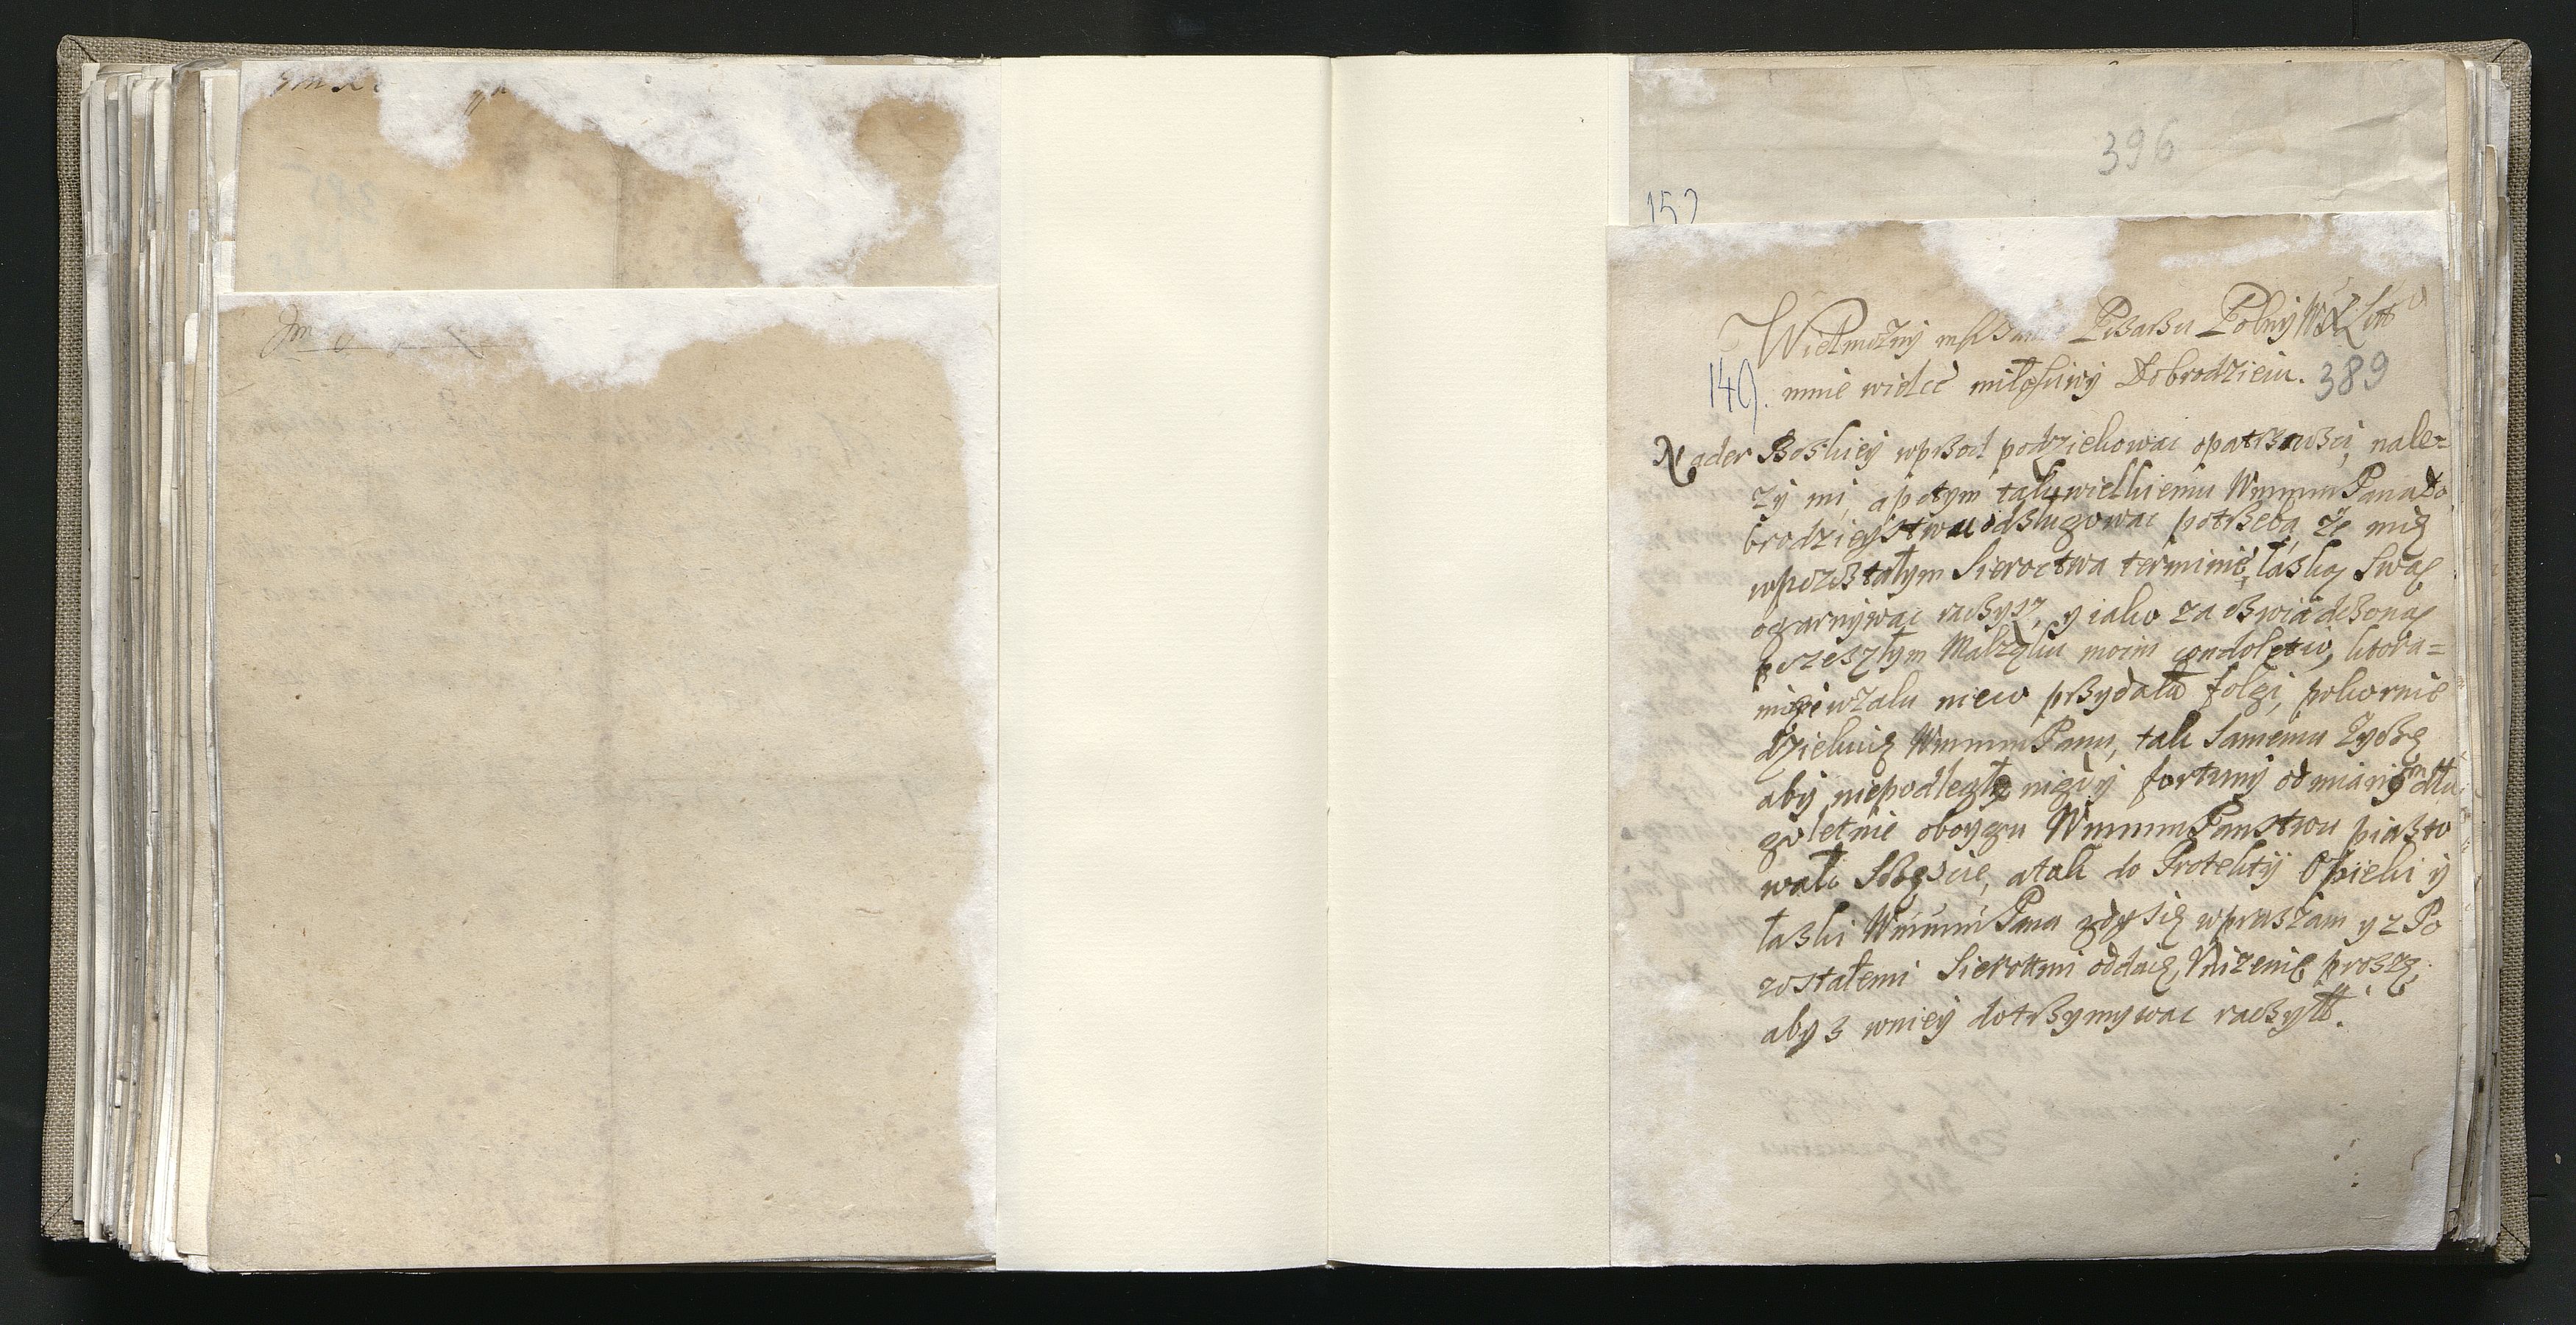 396
152
Wielmożny mśß Panie Pisarßu Polny W X Litt
149. mnie wielcé miłośćiwy Dobrodzieiu. 389
Nader Boskiey wpßod podziekowac opatrßnosci, nale=
ży mi, apotym takwielkiemu Wmmm Pana Do
brodzieystwu odsługowac potßeba, że mię
wpozostałym Sieroctwa terminie, łaską swą
ogarnywac racßysz, y iako za oswiadcßoną
p zeszłym Małząku moim condoleców, ktora=
mnie wżalu nieco pßydała folgi, pokornie
dziekuię Wmmm Panu, tak samemu życßę
aby niepodległe nigdy fortuny odmianom dłu
goletnie oboygu Wmmm Panstwu piasto
wało Scßęscie, atak do Protektÿ Opieki y
łaski Wmmm Pana gdy się wpraszam y z Po
zostałemi Sierotmi oddaię, Vniżenie proszę
abyś wniey dotrßymywac racßył.